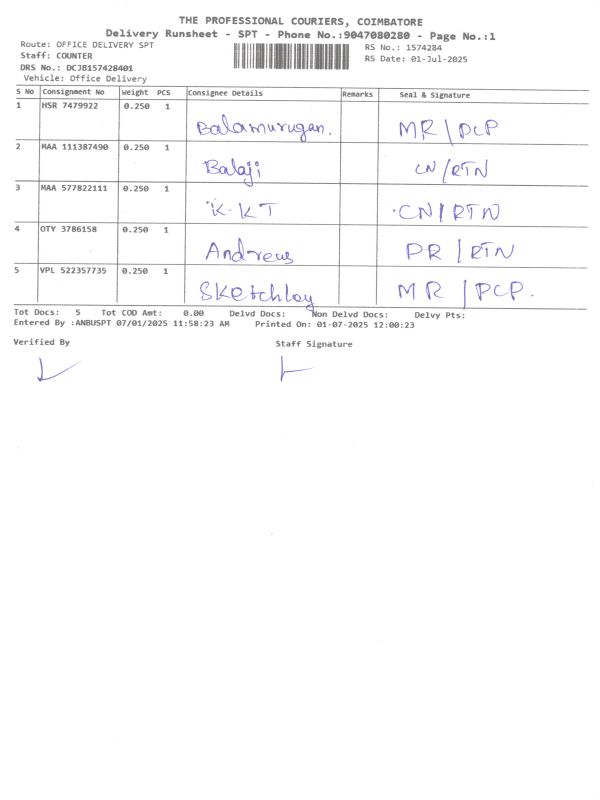 THE PROFESSIONAL COURIERS, COIMBATORE
Delivery Runsheet - SPT - Phone No.:9047080280 - Page No.:1
Route: OFFICE DELIVERY SPT RS No.: 1574284
Staff: COUNTER RS Date: 01-Jul-2025
DRS No.: OCJB157428401
Vehicle: Office Delivery
S No Consignment No Weight PCS Consignee Details Remarks Seal & Signature
1 HSR 7479922 0.250 1 Balamurugan. MR/PCP
2 MAA 111387490 0.250 1 Balaji CN/RTN
3 MAA 577822111 0.250 1 K-KT CN/RTN
4 OTY 3786158 0.250 1 Andrews PR/RTN
5 VPL 522357735 0.250 1 Sketchloy MR/PCP.
Tot Docs: 5 Tot COD Amt: 0.00 Delvd Docs: Non Delvd Docs: Delvy Pts:
Entered By :ANBUSPT 07/01/2025 11:58:23 AM Printed On: 01-07-2025 12:00:23
Verified By Staff Signature